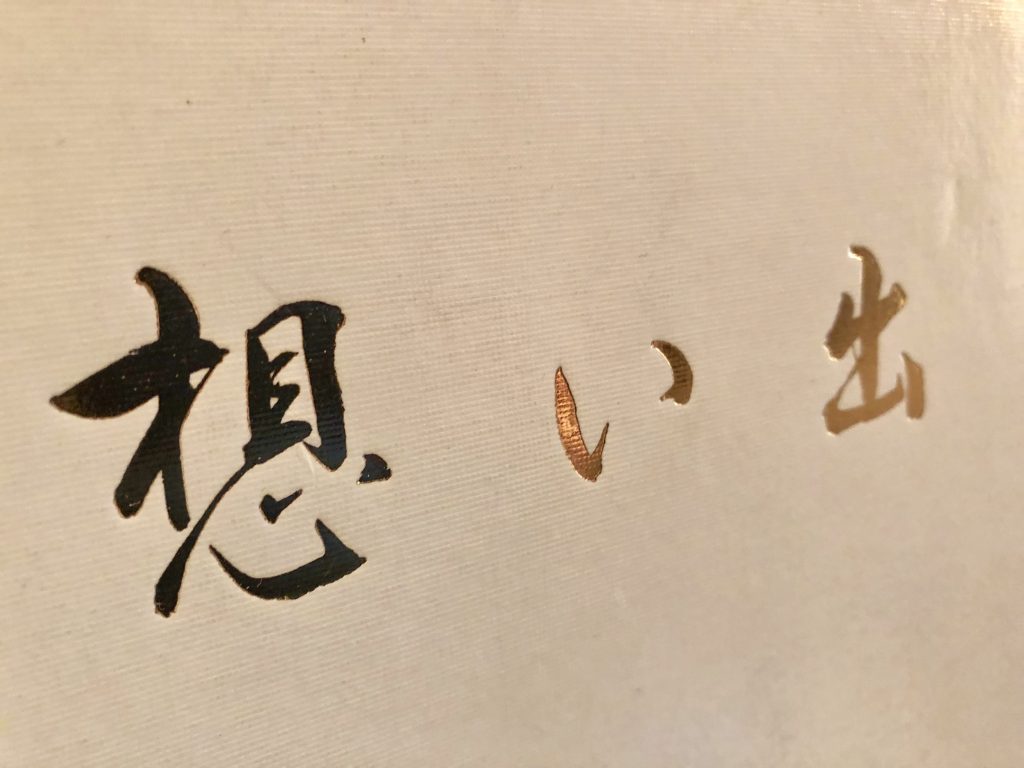 想い出